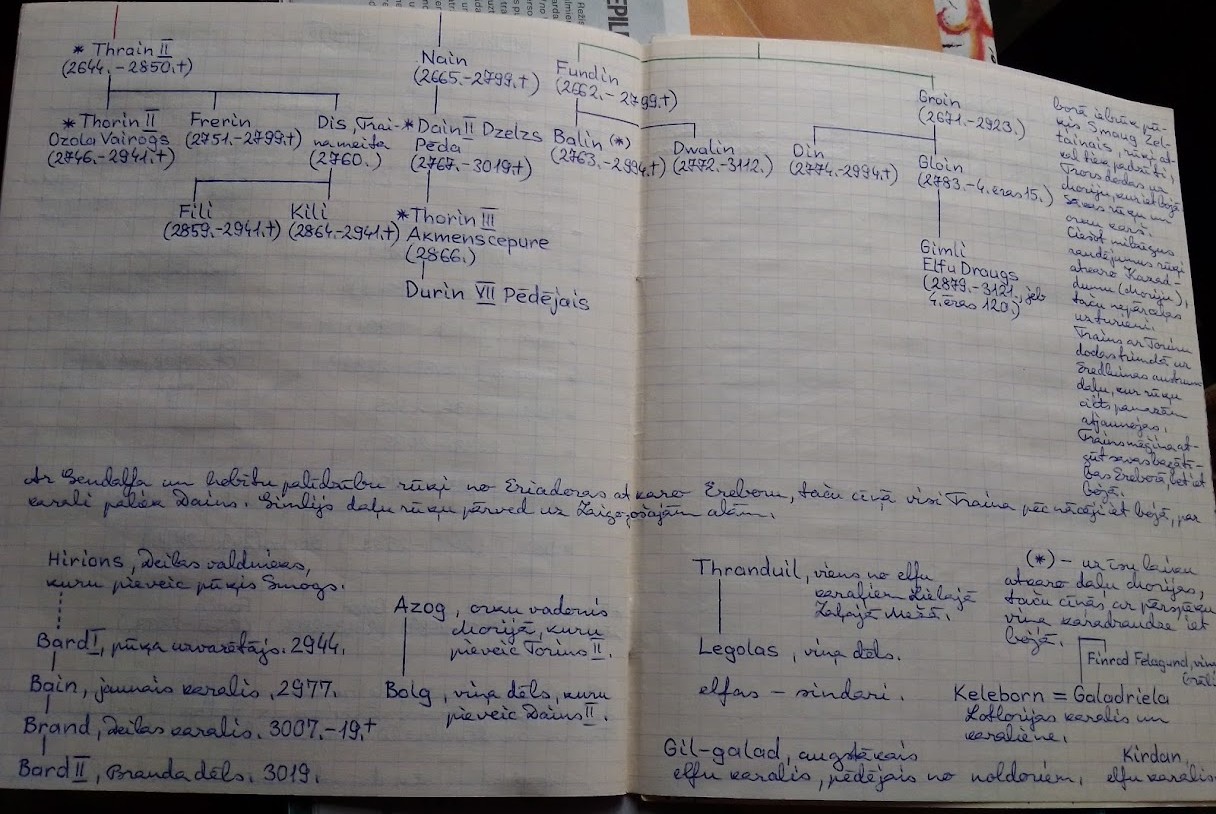 * Thrain II
(2644.-2850.+)
* Thorin II
Ozola Vairogs
(2746.-2941.+)
Frerin
(2751.-2799.+)
Dis, Trai-
na meita
(2760.)
Fili
(2859.-2941.+)
Kili
(2864.-2941.+)
Nain
(2665.-2799.+)
* Dain II Dzelzs
Pēda
(2767.-3019.+)
* Thorin III
Akmenscepure
(2866.)
Durin VII Pēdējais
Fundin
(2662.-2799.+)
Balin (*)
(2763.-2994.+)
Dwalin
(2772.-3112.)
Groin
(2671.-2923.)
Oin
(2774.-2994.+)
Gloin
(2783.-4. ēras 15.)
Gimli
Elfu Draugs
(2879.-3121., jeb
4. ēras 120.)
borā iebrūk pū-
ķis Smaug Zel-
tainais, rūķi at-
kal tiek padzīti,
Trors dodas uz
Moriju, kur iet bojā
Sākas rūķu un
orku karš.
Ciešot milzīgus
zaudējumus rūķi
atkaro Kazad-
dumu (Moriju),
taču nepārceļas
uz turieni.
Trains ar Torinu
dodas trimdā uz
Eredluinas austrumu
daļu, kur rūķu
cilts pamazām
atjaunojas.
Trains mēģina at-
gūt savas bagātī-
bas Ereborā, bet iet
bojā.
Ar Gendalfa un hobitu palīdzību rūķi no Eriadoras atkaro Ereboru, taču cīņā visi Traina pēcnācēji iet bojā, par
karali paliek Dains. Gimlijs daļu rūķu pārved uz Zaigojošajām alām.
Hirions, Deilas valdnieks,
kuru pieveic pūķis Smogs.
Bard I, pūķa uzvarētājs. 2944.
Bain, jaunais karalis, 2977.
Brand, Deilas karalis. 3007.-19.+
Bard II, Branda dēls. 3019.
Azog, orku vadonis
Morijā, kuru
pieveic Torins II.
Bolg, viņa dēls, kuru
pieveic Dains II.
Thranduil, viens no elfu
karaļiem Lielajā
Zaļajā Mežā.
Legolas, viņa dēls.
elfas - sindari.
(*) - uz īsu laiku
atkaro daļu Morijas,
taču cīņās ar pārspēku
viņa karadraudze iet
bojā.
Finrod Felagund, viņ
Keleborn = Galadriela
Lotlorijas karalis un
karaliene.
Gil-galad, augstākais
elfu karalis, pēdējais no noldoriem.
Kirdan,
elfu karalis